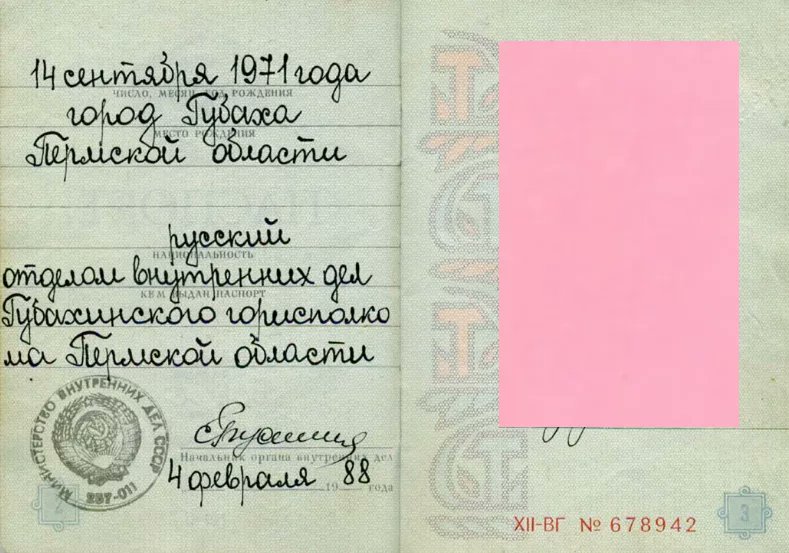 14 сентября 1971 года
ЧИСЛО, МЕСЯЦ, ГОД РОЖДЕНИЯ
город Губаха
МЕСТО РОЖДЕНИЯ
Пермской области
русский
НАЦИОНАЛЬНОСТЬ
отделом внутренних дел
КЕМ ВЫДАН ПАСПОРТ
Губахинского горисполко
ма Пермской области
МИНИСТЕРСТВО ВНУТРЕННИХ ДЕЛ СССР
Начальник органа внутренних дел
4 февраля 1988 года
2
XII-ВГ № 678942
3